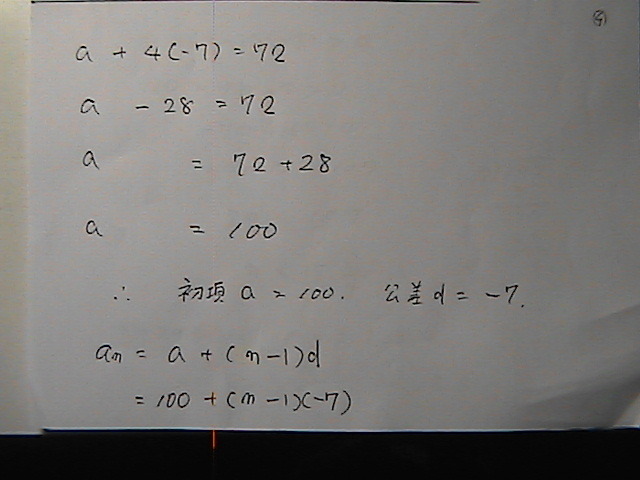 ⑨
a + 4(-7) = 72
a - 28 = 72
a = 72 + 28
a = 100
∴ 初項 a = 100. 公差 d = -7.
an = a + (n-1)d
= 100 + (n-1)(-7)